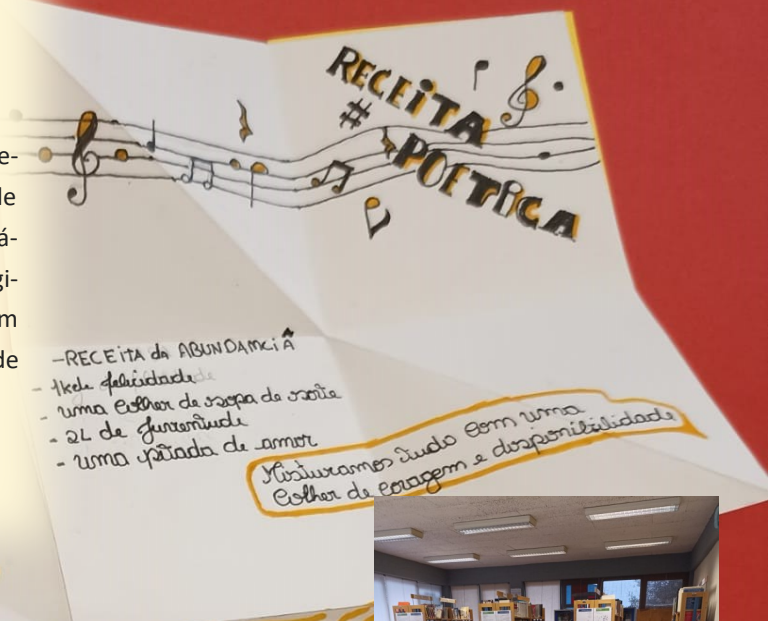 e-
de
á-
gi-
m
de
RECEiTA
POETiCA
-RECEiTA da ABUNDAMCiÃ
- 1k de felicidade
- uma colher de sopa de sorte
- 2L de Juventude
- uma pitada de amor
Misturamos tudo com uma
Colher de coragem e disponibilidade